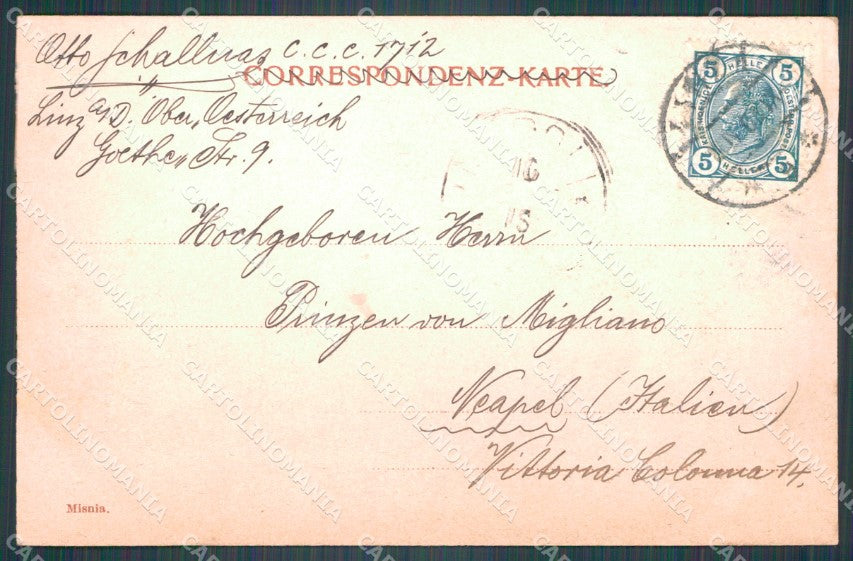 Otto Schallnas C.C.C. 1712
CORRESPONDENZ-KARTE.
Linz a/D. Ober, Oesterreich
Goethe Str. 9.
5 HELLER 5
5 HELLER 5
16
15
Hochgeboren Herrn
Prinzen von Migliano
Neapel (Italien)
Vittoria Colonna 14.
Misnia.
CARTOLINOMANIA